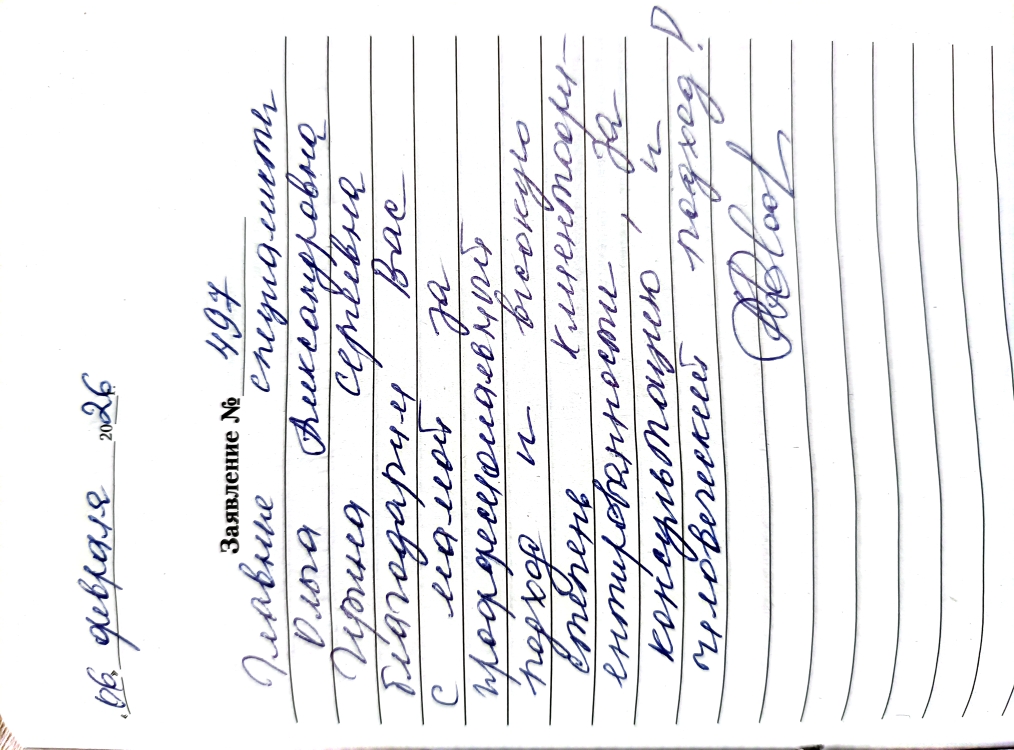 «06» февраля 2026 г.
Заявление № 497
Главные специалисты
Ольга Александровна
Ирина Сергеевна
благодарим Вас
с мамой за
профессиональный
подход и высокую
степень клиентоори-
ентированности, за
консультацию и
человеческий подход!